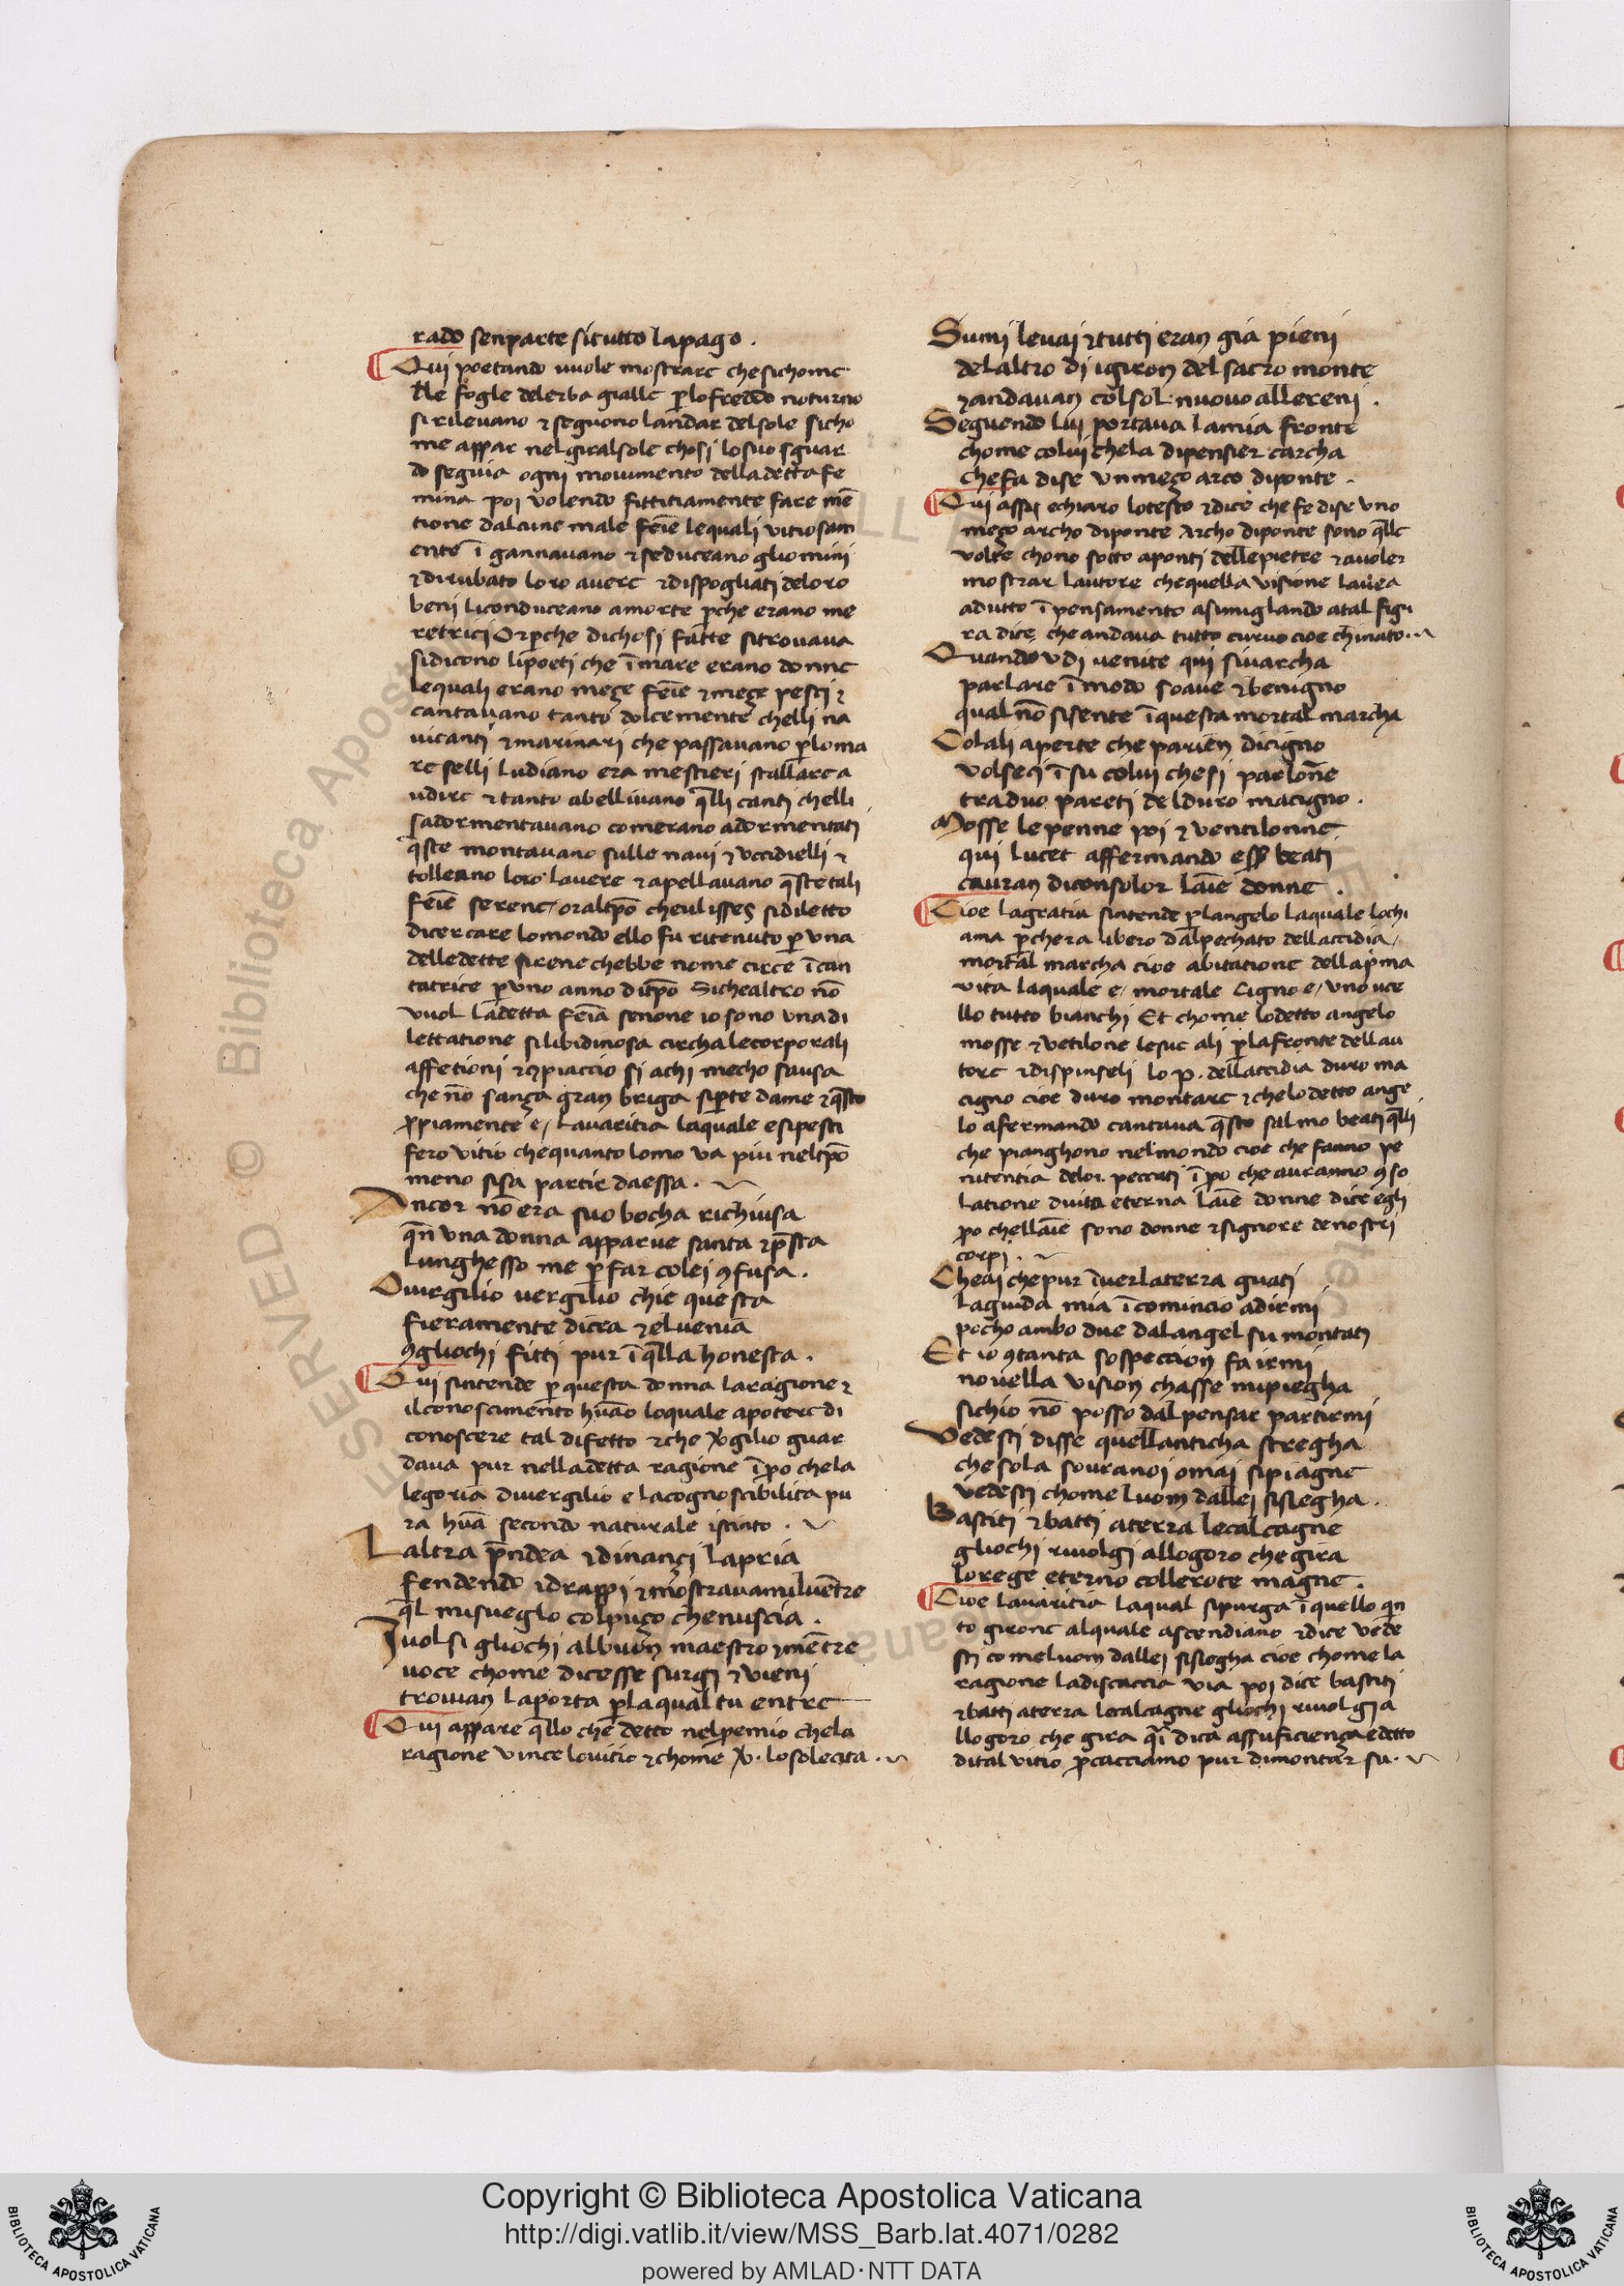 rado senparte situtto lapago .
Qui poetando uuole mostrare chesichome
lle fogle delerba gialle p̱lofreddo noturno
si rilevano ⁊ seguono landar delsole sicho
me appar nel giralsole chosi losuo sguar
do seguia ogni mouimento delladetta fe
mina poi volendo fittitiamente fare mē
tione dalcune male feīe lequali vitiosam
ente ī gannauano ⁊ seduceano gliomini
⁊dirubato loro auere ⁊dispogliati deloro
beni liconduceano amorte p̱che erano me
retrici Orp̱che dichosi fatte sitrouaua
sidicono lipoeti che īmare erano donne
lequali erano meçe feīe ⁊meçe pesci ⁊
cantauano tanto dolcemente chelli na
uicanti ⁊marinari che passauano p̱loma
re selli ludiano era mestieri stallarea
udire ⁊tanto abelliuano q̄lli canti chelli
sadormentauano comerano adormentati
q̄ste montauano sulle naui ⁊ vccidielli ⁊
tolleano loro lauere ⁊apellauano q̄stetali
feīe serene / oraltp̄o cheulisses sidiletto
dicercare lomondo ello fu ritenuto p̱ vna
delledette sirene chebbe nome circe īcan
tatrice p̱vno anno ditp̄o Sichealtro nō
vuol ladetta feīa senone io sono vnadi
lettatione silibidinosa circhalecorporali
affetioni ⁊ꝯpiaccio si achi mecho sausa
che nō sança gran briga sip̱te dame ⁊q̄sto
p̱piamente e / lauaritia laquale esipesti
fero vitio chequanto lomo va piu neltp̄o
meno sisa partir daessa .
Ancor nō era suo bocha richiusa
qn̄ vna donna apparue santa ⁊p̄sta
lunghesso me p̱ far colei ꝯfusa .
O uirgilio uergilio chie questa
fieramente dicea ⁊eluenia
ꝯgliochi fitti pur īq̄lla honesta .
Qui sintende p̱ questa donna laragione ⁊
ilconoscimento hūāo loquale apotere di
conoscere tal difetto ⁊che v̱gilio guar
daua pur nelladetta ragione īp̱o chela
legoria diuergilio e lacognoscibilita pu
ra hūā secondo naturale istinto .
Laltra p̄ndea ⁊dinançi lapria
fendendo idrappi ⁊mostrauamiluentre
q̄l misueglo colpuço chenuscia .
I uolsi gliochi albuon maestro ⁊mētre
uoce chome dicesse surgi ⁊ vieni
trouian laporta p̱laqual tu entre
Qui appare q̄llo che detto nelp̱emio chela
ragione vince louitio ⁊chome v̱. losolecita .
Sumi leuai ⁊tutti eran gia pieni
delaltro di igiron del sacro monte
⁊andauan colsol nuouo allereni .
Seguendo lui portaua lamia fronte
chome colui chela dipensier carcha
chefa dise vnmeço arco diponte .
Qui assai echiaro lotesto ⁊dice che fe dise vno
meço archo diponte Archo diponte sono q̄lle
volte chono sotto aponti dellepietre ⁊auoler
mostrar lautore chequella visione lauea
adutto ī pensamento asimiglando atal figu
ra dice che andaua tutto curuo cioe chinato .
Quando vdi uenite qui siuarcha
parlare īmodo soaue ⁊benigno
qual nō sisente īquesta mortal marcha
Colali aperte che parien dicigno
volseci īsu colui chesi parlōne
traduo pareti delduro macigno .
Mosse lepenne poi ⁊ ventilonne
qui lucet affermando ess̱ beati
cauran diconsolor laīe donne .
Cioe lagratia sintende p̱langelo laquale lochi
ama p̱chera libero dalpechato dellaccidia /
mortal marcha cioe abitatione dellap̱ma
vita laquale e / mortale Cigno e / vno uce
llo tutto bianchi Et chome lodetto angelo
mosse ⁊vetilone lesue ali p̱lafronte dellau
tore ⁊dispinseli lo p̱. dellaccidia duro ma
cigno cioe duro montare ⁊chelodetto ange
lo afermando cantaua q̄sto salmo beati q̄lli
che pianghono nelmondo cioe che fanno pe
nitentia delor peccati īp̱o che auranno ꝯso
latione diuita eterna laīe donne dice egli
p̱o chellaīe sono donne ⁊signore denostri
corpi .
Cheai chepur īuerlaterra guati
laguida mia īcomincio adirmi
pocho ambo due dalangel su montati
Et io ꝯtanta sospeccion fa irmi
nouella vision chasse mipiegha
sichio nō posso dalpensar partirmi
Vedesti disse quellanticha stregha
chesola souranoi omai sipiagne
vedesti chome luom dallei sislegha .
Bastiti ⁊batti aterra lecalcagne
gliochi riuolgi allogoro che gira
lorege eterno collerote magne .
Cioe lauaritia laqual sipurga īquello qn
to girone alquale ascendiano ⁊dice vede
sti comeluom dallei sislegha cioe chome la
ragione ladiscaccia via poi dice bastiti
⁊batti aterra lecalcagne gliochi riuolgi a
llogoro che gira q̄i dica assuficiença edetto
dital vitio p̱cacciamo pur dimontar su .
Copyright © Biblioteca Apostolica Vaticana
http://digi.vatlib.it/view/MSS_Barb.lat.4071/0282
powered by AMLAD·NTT DATA
BIBLIOTECA APOSTOLICA VATICANA
BIBLIOTECA APOSTOLICA VATICANA